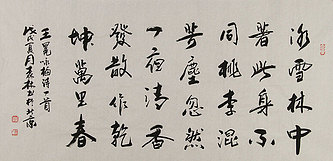 冰雪林中
著此身不
同桃李混
芳塵忽然
一夜清香
發散作乾
坤萬里春
王冕咏梅詩一首